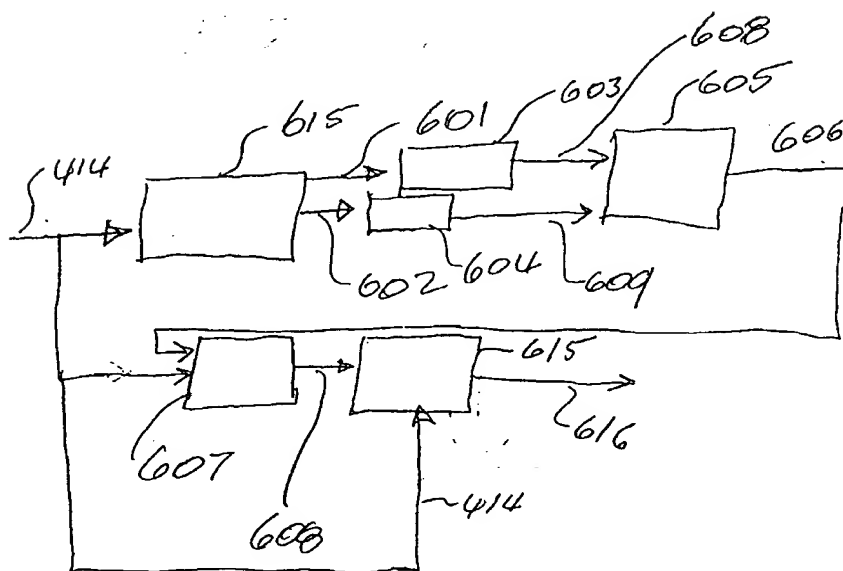 608
603
605
615
601
606
414
602
604
609
615
616
607
608
414